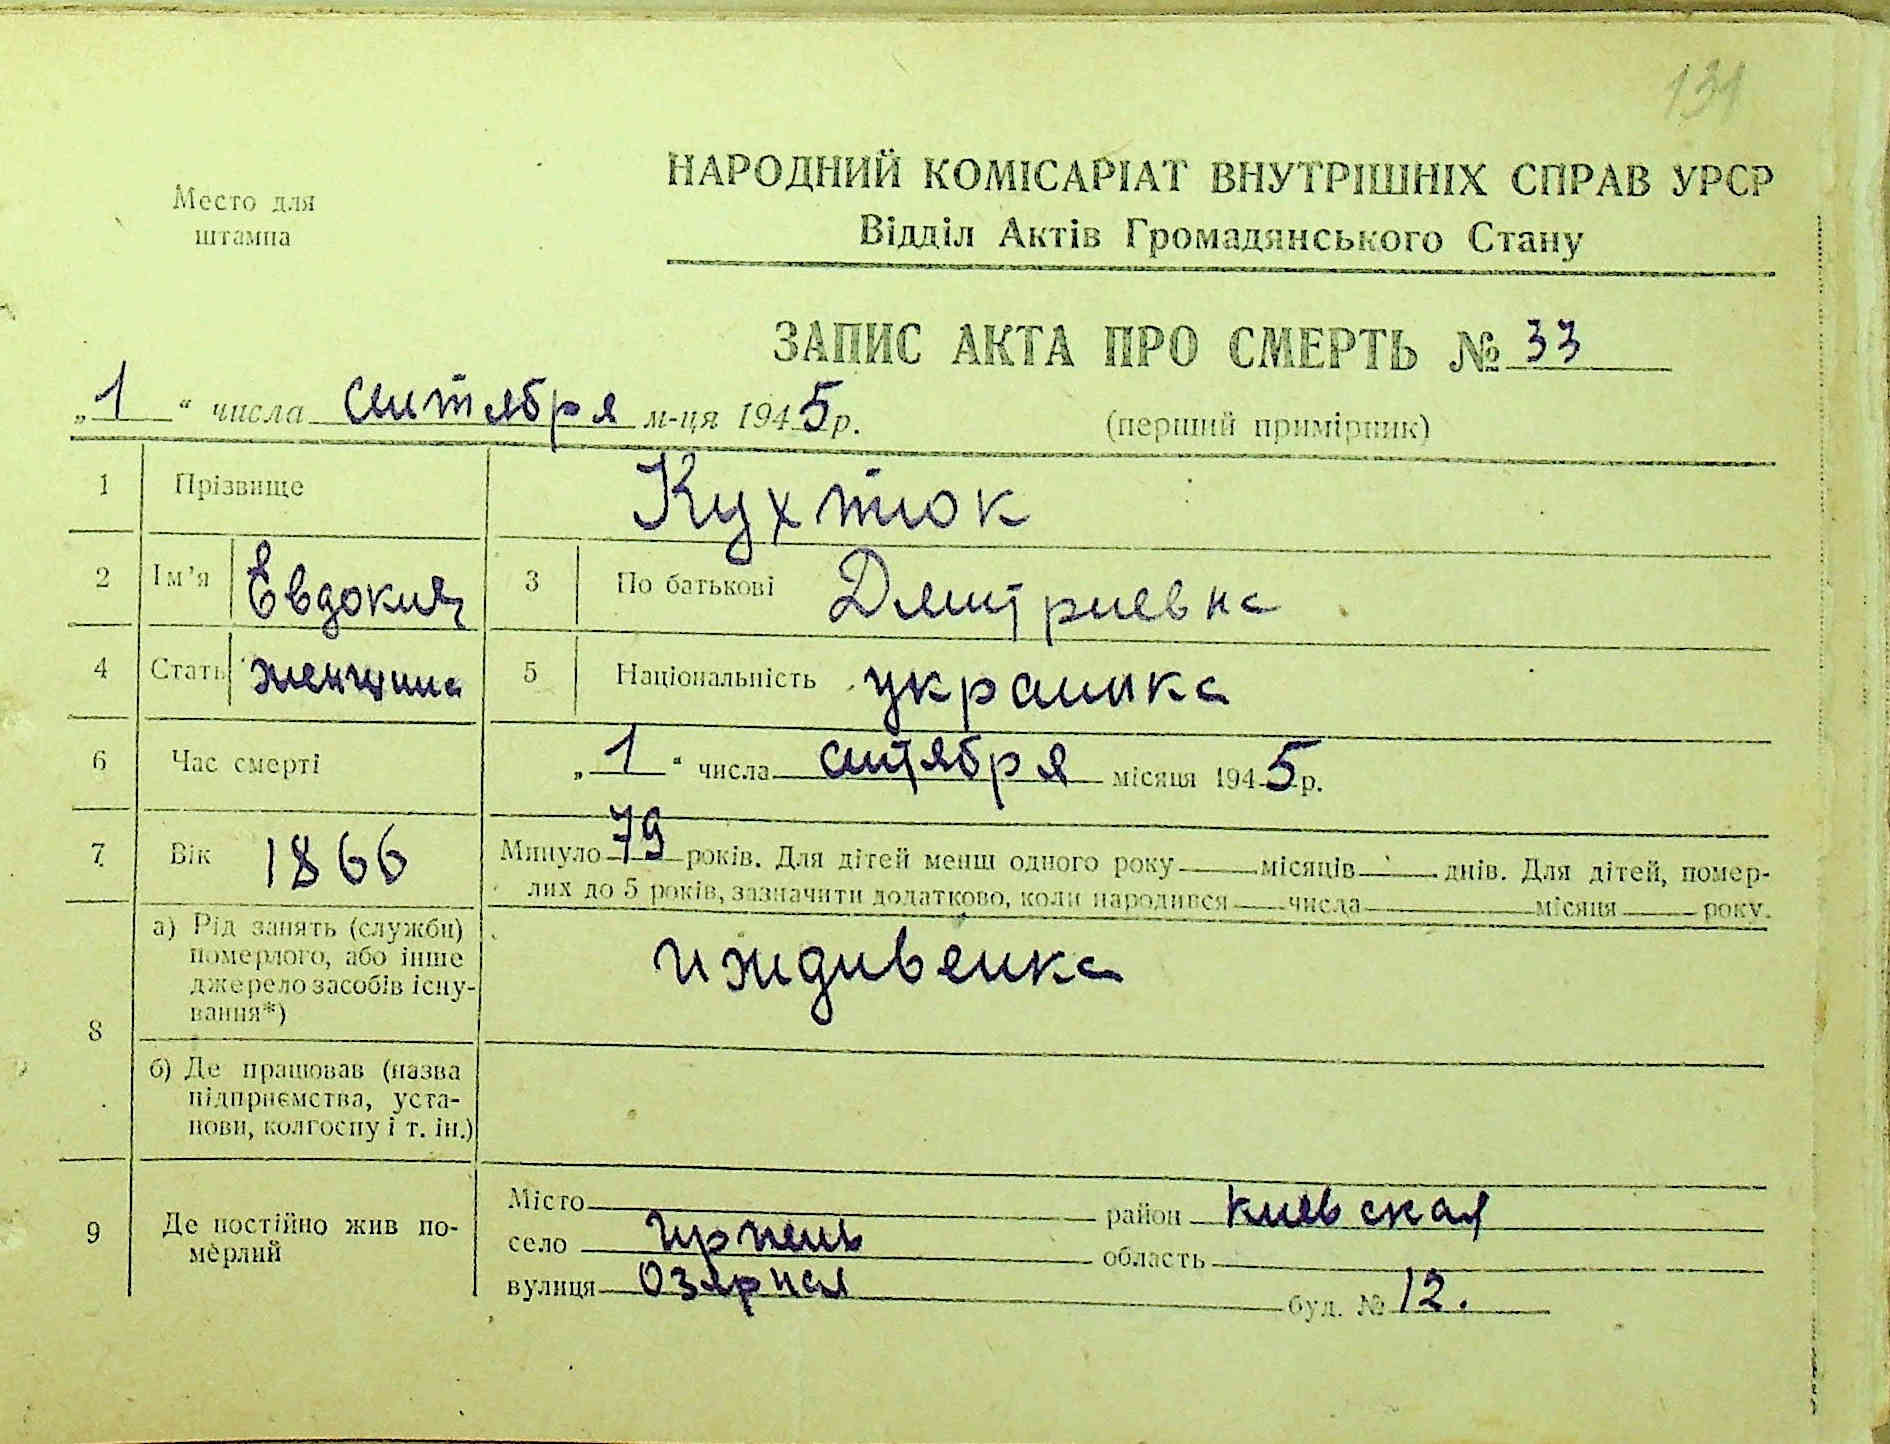 131
Место для
штампа
НАРОДНИЙ КОМІСАРІАТ ВНУТРІШНІХ СПРАВ УРСР
Відділ Актів Громадянського Стану
ЗАПИС АКТА ПРО СМЕРТЬ № 33
„1“ числа сентября м-ця 1945 р.
(перший примірник)
1 Прізвище Кухтюк
2 Ім'я Евдокия 3 По батькові Дмитриевна
4 Стать женщина 5 Національність украинка
6 Час смерті „1“ числа сентября місяця 1945 р.
7 Вік 1866 Минуло 79 років. Для дітей менш одного року місяців днів. Для дітей, помер-
лих до 5 років, зазначити додатково, коли народився числа місяця року.
8 а) Рід занять (служби)
померлого, або інше
джерело засобів існу-
вання*)
иждивенка
б) Де працював (назва
підприємства, уста-
нови, колгоспу і т. ін.)
9 Де постійно жив по-
мерлий
Місто район Киевская
село Ирпень область
вулиця Озерная буд. № 12.